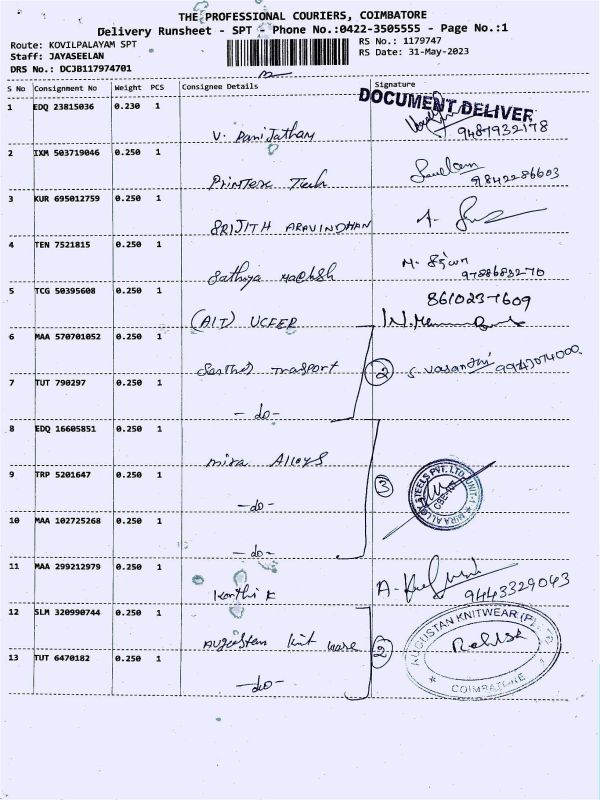 THE PROFESSIONAL COURIERS, COIMBATORE
Delivery Runsheet - SPT - Phone No.:0422-3505555 - Page No.:1
Route: KOVILPALAYAM SPT
RS No.: 1179747
Staff: JAYASEELAN
RS Date: 31-May-2023
DRS No.: DCJB117974701
S No Consignment No Weight PCS Consignee Details Signature
DOCUMENT DELIVER
1 EDQ 23815036 0.230 1
V. 9487932178
2 IXM 503719046 0.250 1
Printers Tech 9842286603
3 KUR 695012759 0.250 1
SRIJITH ARAVINDHAN A.
4 TEN 7521815 0.250 1
Sathiya 9788683270
5 TCG 50395608 0.250 1
8610237609
(AIT) UCEER
6 MAA 570701052 0.250 1
Transport 2 S. Vasanthi
7 TUT 790297 0.250 1
-do-
8 EDQ 16605851 0.250 1
mira Alloys
9 TRP 5201647 0.250 1
-do- 3
MIRA ALLOY STEELS PVT. LTD. UNIT-1
10 MAA 102725268 0.250 1
-do-
11 MAA 299212979 0.250 1
Karthi K A. 9443329043
12 SLM 320990744 0.250 1
Augustan knit ware 2
AUGUSTAN KNITWEAR
COIMBATORE
13 TUT 6470182 0.250 1
-do-